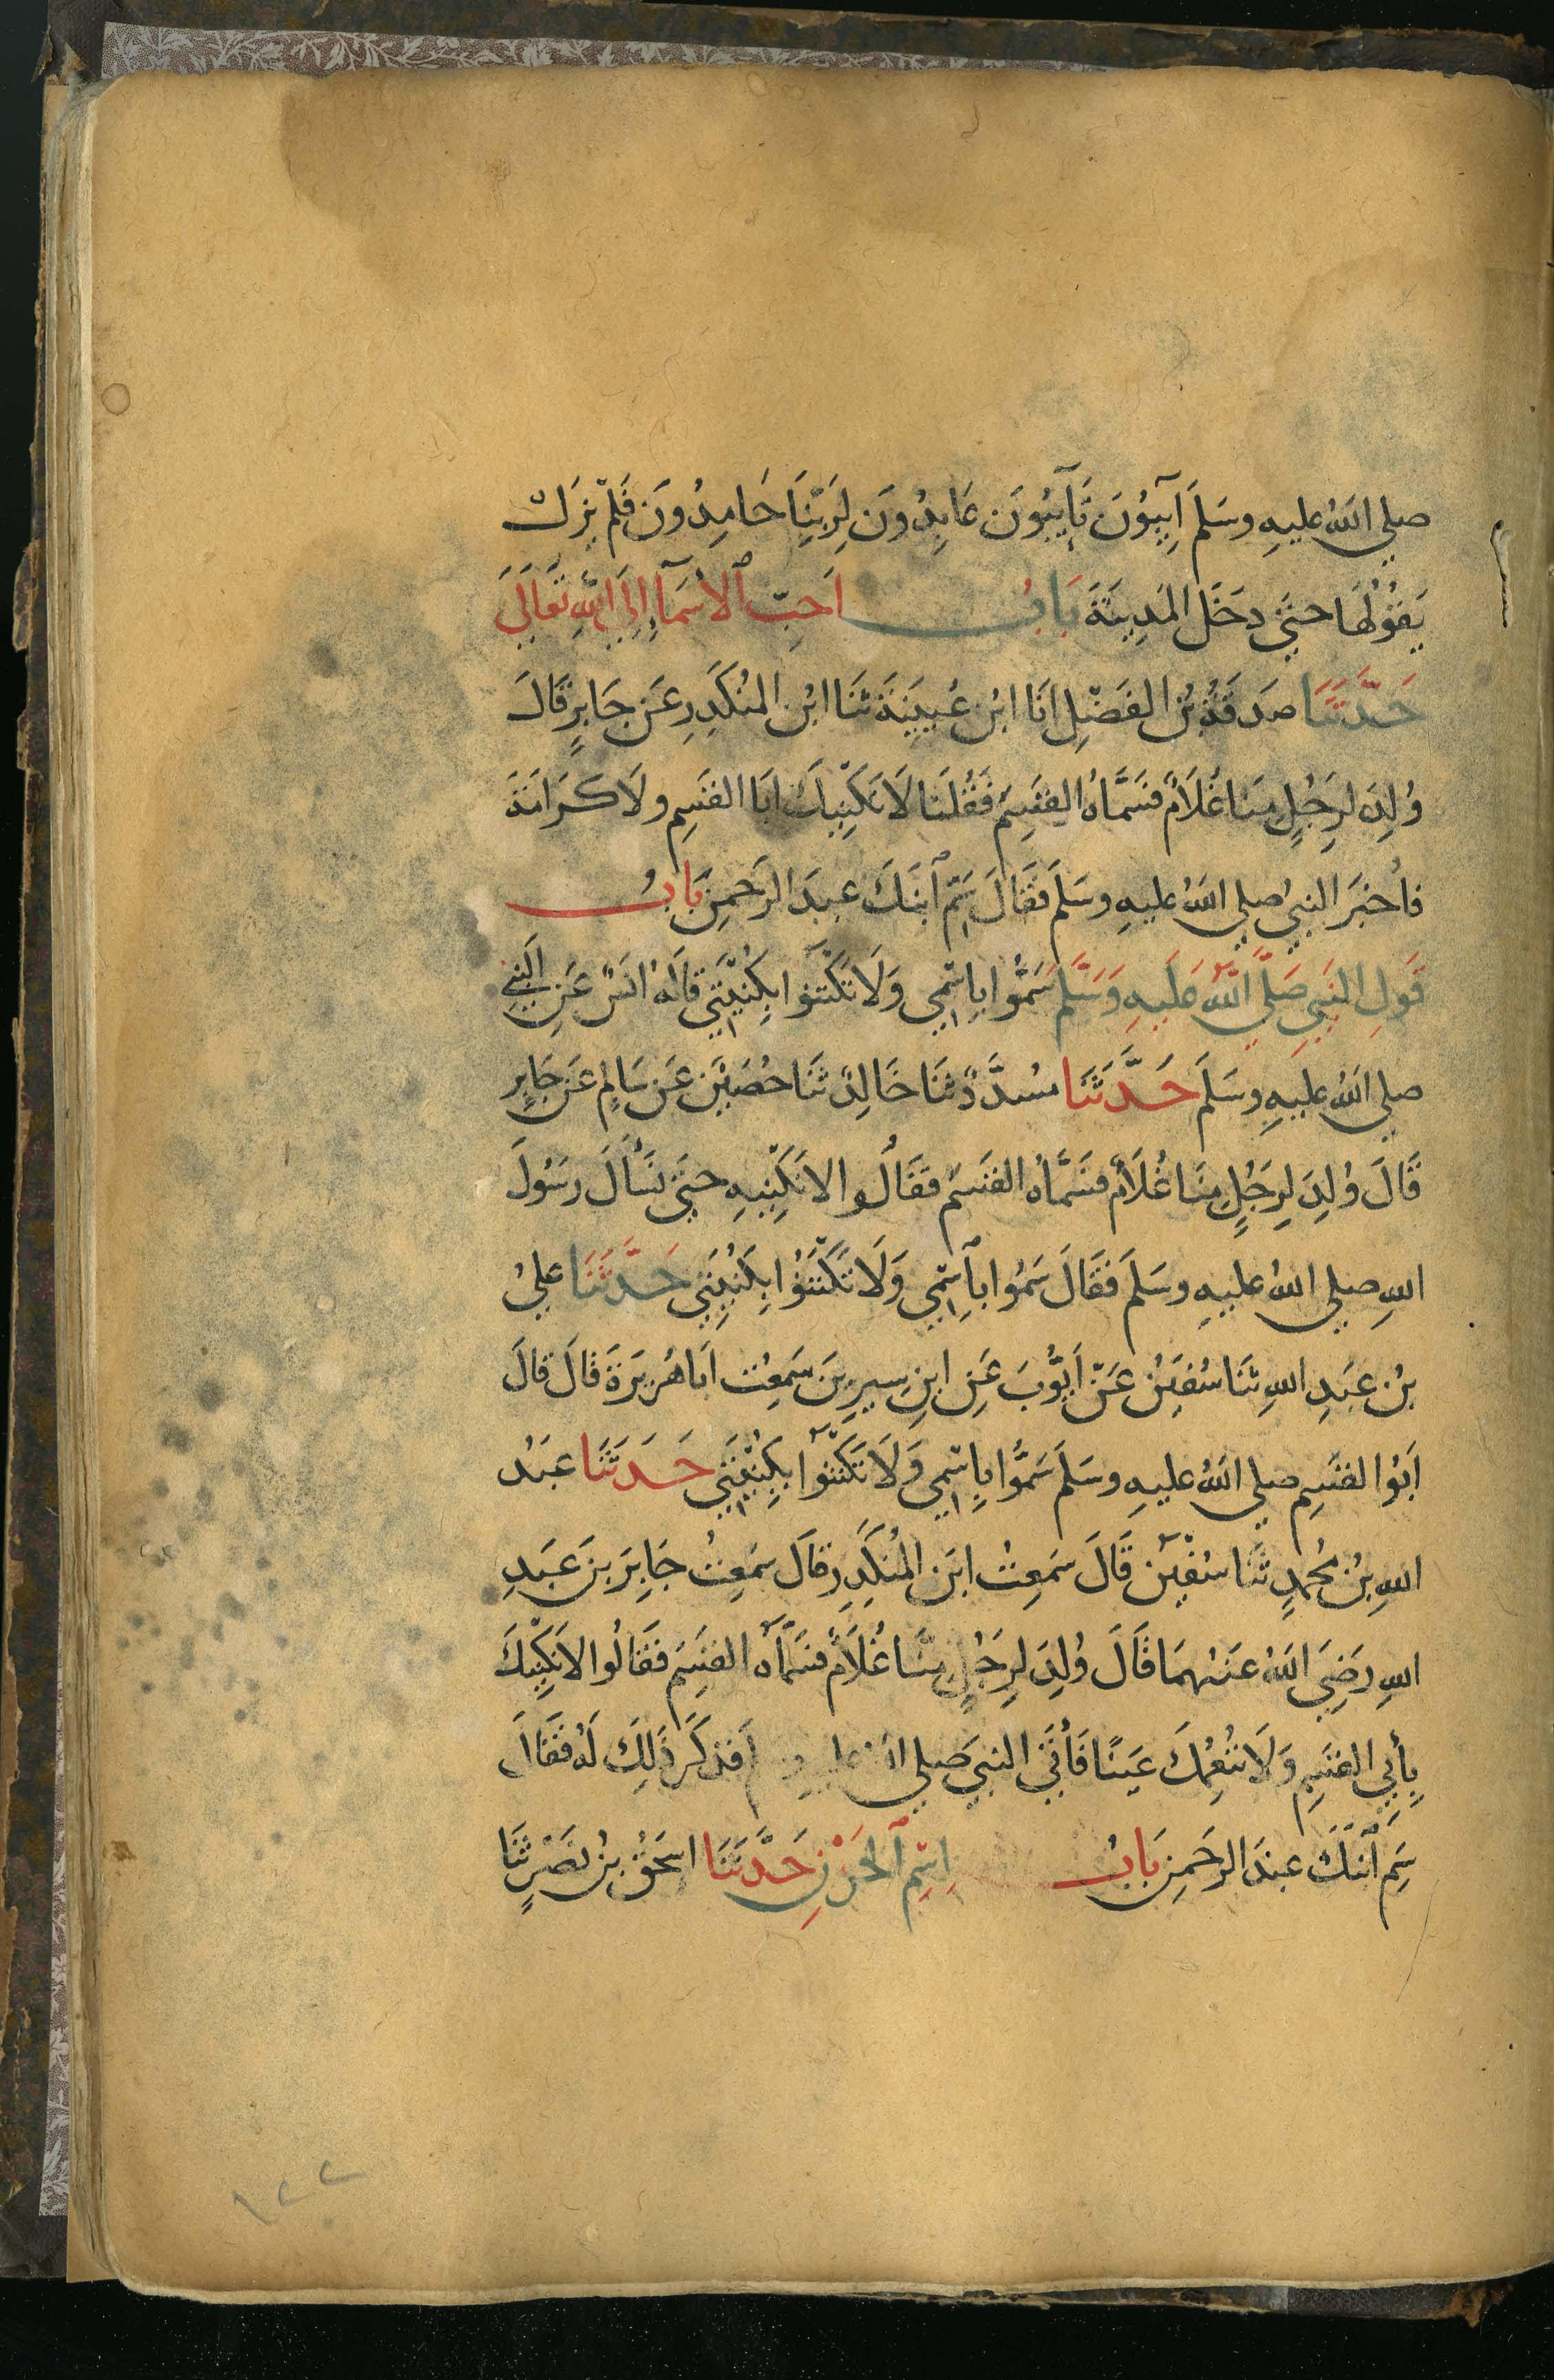 صلي اللهُ عليهِ وسَلمَ آيِبُونَ تَآيِبُونَ عَابِدُونَ لِرَبِّنَا حَامِدُونَ فَلَمْ يَزَلْ
يَقُولُهَا حتَّى دخَلَ المَدِينَةَ بَابُ اَحَبِّ ٱلاَسْمَآءِ اِلَي اللهِ تَعَالَي
حَدَّثَنَا صَدَقَةُ بْنُ الفَضْلِ انَا ابْنُ عُيَيْنَةَ ثنَا ابْنُ المُنكَدِرِ عَن جَابِرٍ قَالَ
وُلِدَ لِرَجُلٍ مِنَّا غُلَامٌ فسَمَّاهُ القٰسِمَ فَقُلنَا لَا نَكْنِيكَ ابَا القٰسِمِ ولَا كَرَامَةَ
فاُخبَرَ النبيُ صلي اللهُ عليهِ وسَلمَ فقَالَ سَمِّ ٱبنَكَ عبدَ الرَحمنِ بَابُ
قَولِ النَبيِ صَلَّي اللهُ عَلَيهِ وَسَلَّم سَمُّوا بِاسْمِي وَلَا تَكْتَنُوا بِكُنْيَتِي قَالَهُ انَسٌ عَنِ النَبيِ
صلي اللهُ عليهِ وسَلمَ حَدَّثنَا مسَدَّدٌ ثنَا خَالِدٌ ثنَا حُصَيْنٌ عَن سَالِمٍ عَن جَابِرٍ
قَالَ وُلِدَ لِرَجُلٍ مِنَّا غُلَامٌ فسَمَّاهُ القٰسِمَ فقَالُوا لا نَكْنِيهِ حتَّى نَسْأَلَ رسُولَ
اللهِ صلي اللهُ عليهِ وسَلمَ فقَالَ سَمُوا بِاسْمِي وَلَا تكْتَنُوا بِكُنْيَتِي حَدَّثَنَا عليُ
بْنُ عَبدِ اللهِ ثنَا سُفيٰنُ عَنْ اَيُّوبَ عَنِ ابنِ سِيرِينَ سَمِعْتُ ابَا هُرَيرَةَ قالَ قالَ
اَبُوا القٰسِمِ صلي اللهُ عليهِ وسَلمَ سَمُّوا بِاسْمِي وَلَا تَكْتَنُوا بِكُنْيَتِي حَدَثَنَا عَبْدُ
اللهِ بْنُ مُحمدٍ ثنَا سُفْيٰن قَالَ سَمِعتُ ابنَ المُنْكَدِرِ قالَ سَمِعتُ جَابِرَ بنَ عَبدِ
اللهِ رَضِيَ اللهُ عنهُمَا قَالَ وُلِدَ لِرَجُلٍ مِنَّا غُلَامٌ فسَمَّاهُ القٰسِمَ فقَالُوا لا نَكْنِيكَ
بِأَبِي القٰسِمِ وَلَا نُنْعِمُكَ عَيْنًا فَأَتَى النبيَ صلي اللهُ عليهِ وسلم فذكَرَ ذَلِكَ لَهُ فقَالَ
سَمِّ ٱبْنَكَ عبدَ الرَحَمنِ بَابُ اِسْمِ ٱلحَزْنِ حَدَّثَنَا اسحٰقُ بنُ نَصْرٍ ثنَا
١٢٢